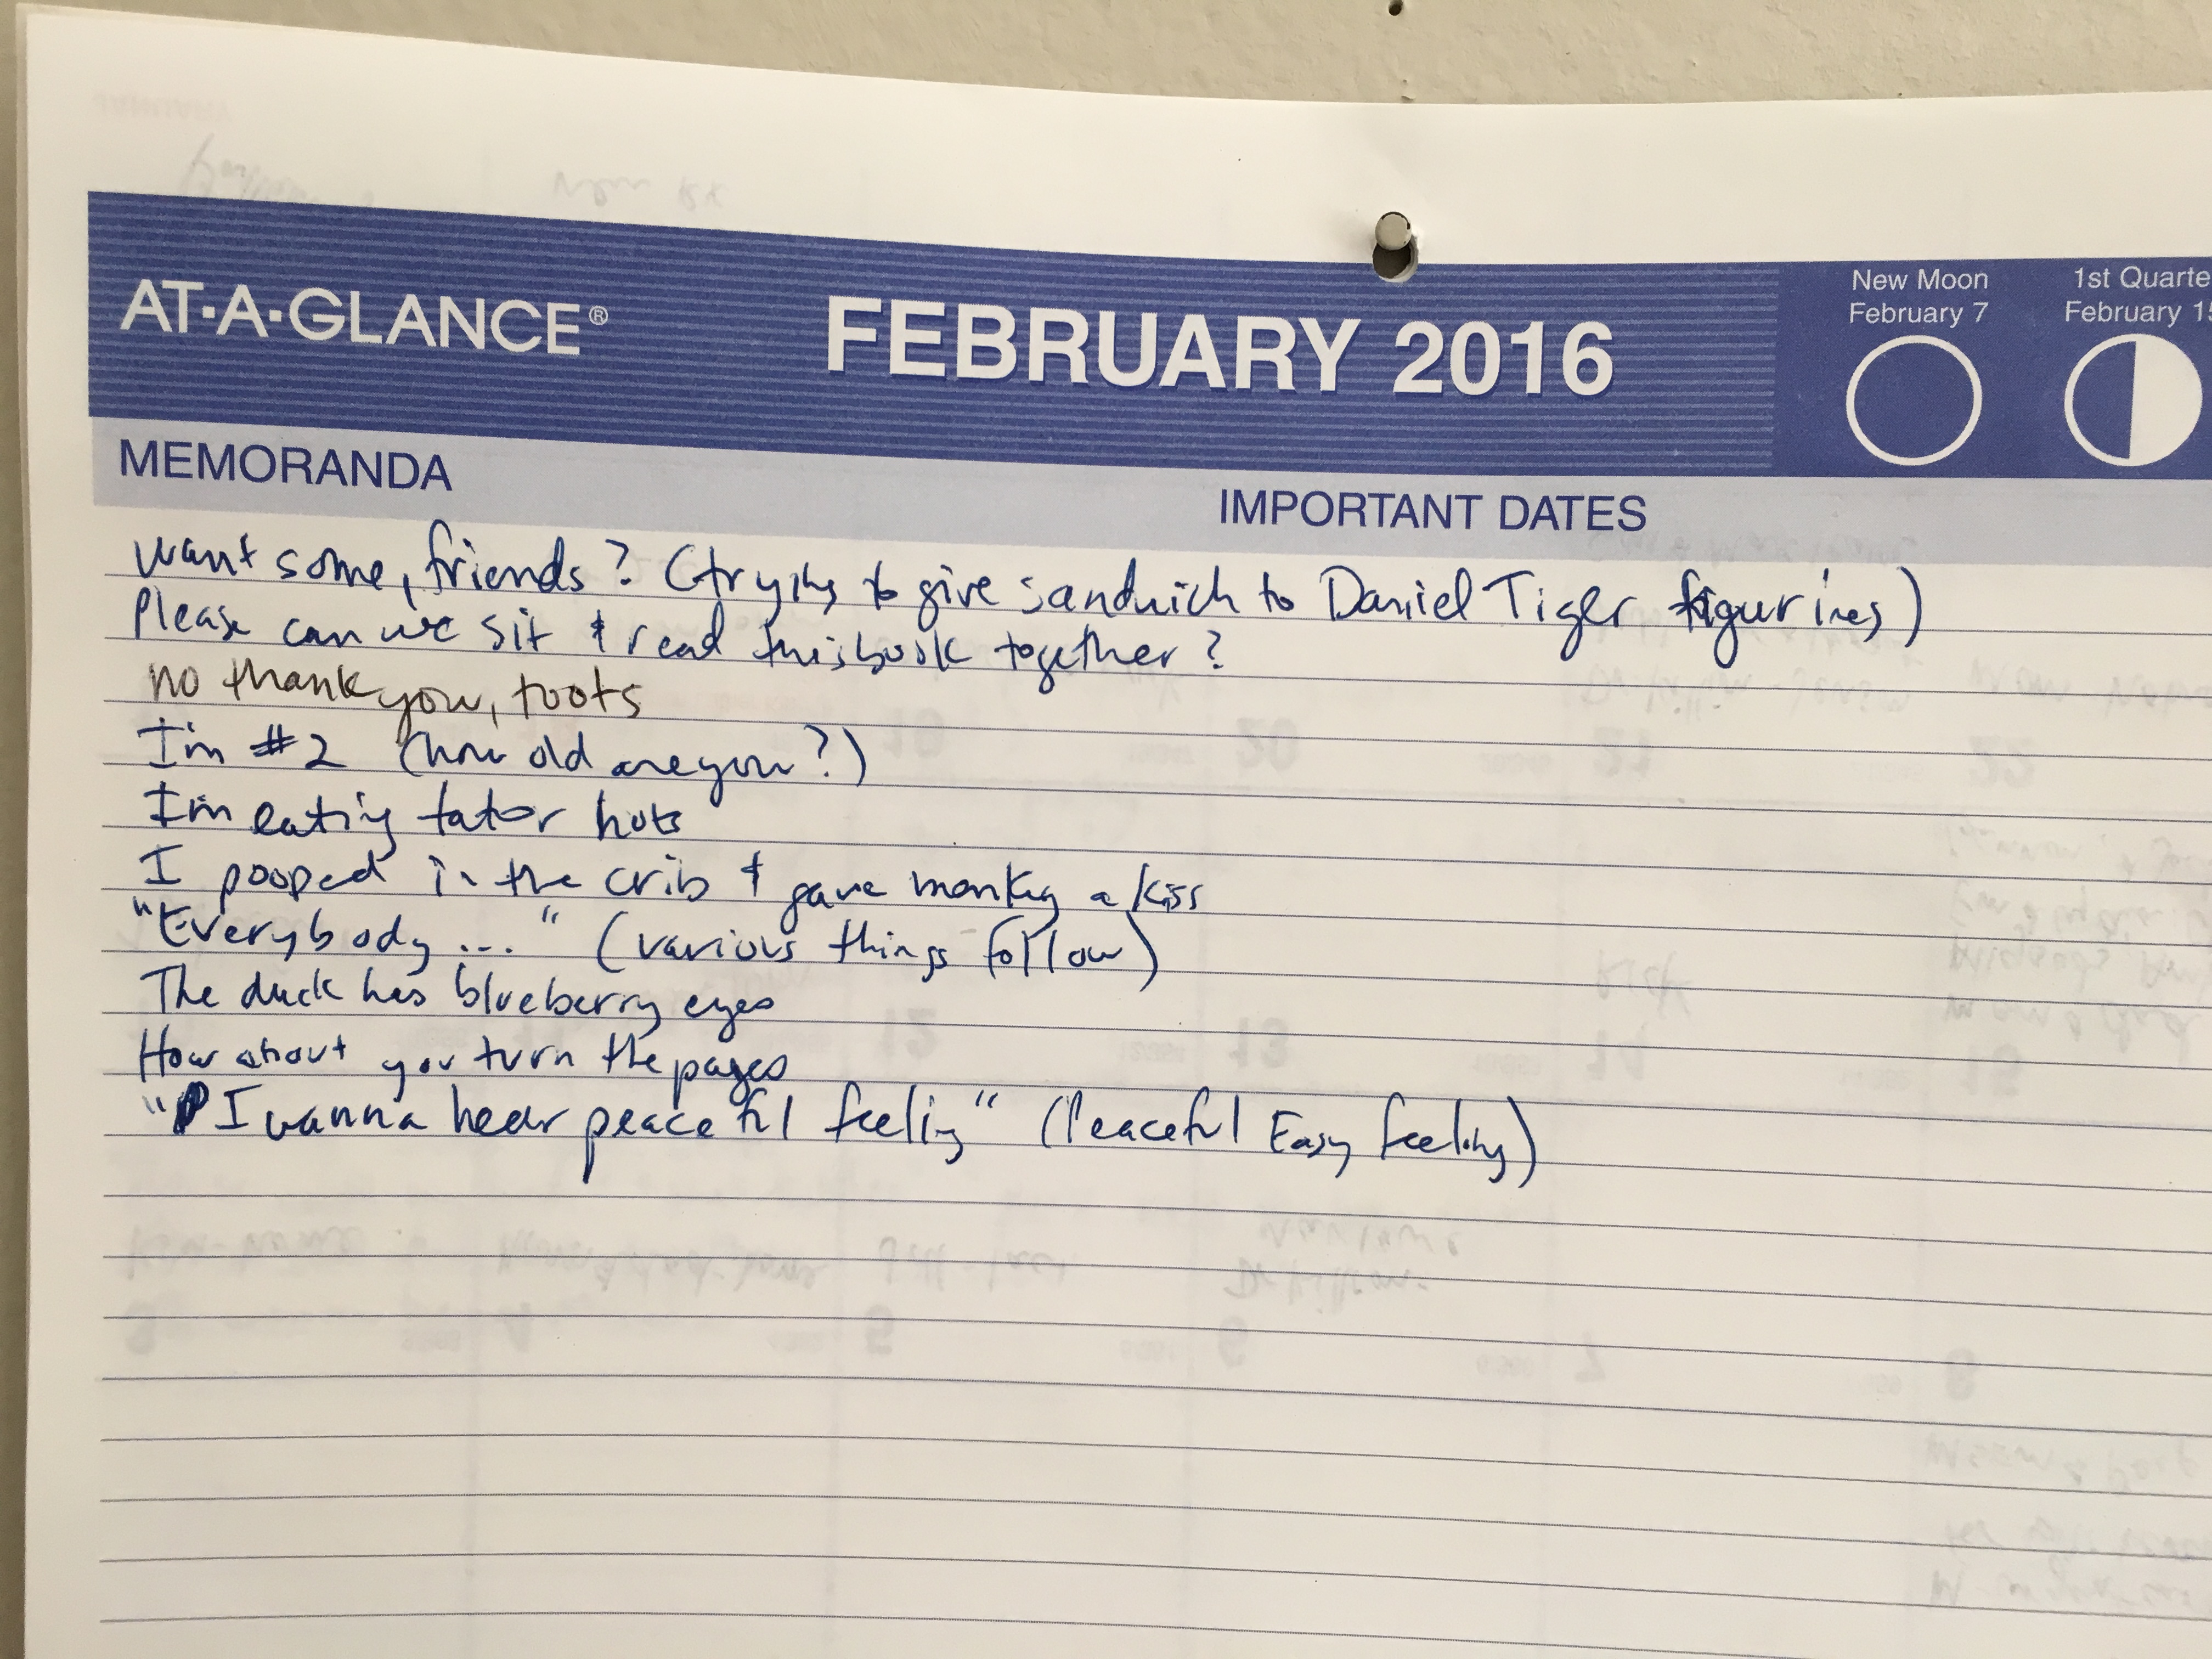 AT·A·GLANCE®
FEBRUARY 2016
New Moon
February 7
1st Quarte
February 15
MEMORANDA
IMPORTANT DATES
want some, friends? (trying to give sandwich to Daniel Tiger figurines)
Please can we sit & read this book together?
no thank you, toots
I'm #2 (how old are you?)
I'm eating tator hots
I pooped in the crib & gave monkey a kiss
"Everybody ..." (various things follow)
The duck has blueberry eyes
How about you turn the pages
"I wanna hear peaceful feeling" (Peaceful Easy Feeling)